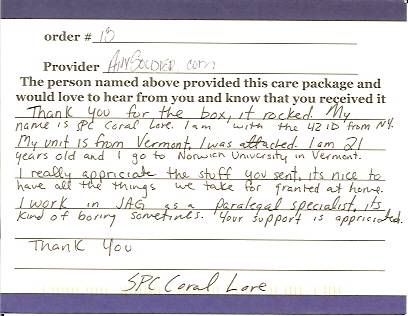 order # 15
Provider AnySoldier.com
The person named above provided this care package and
would love to hear from you and know that you received it
Thank you for the box, it rocked. My
name is SPC Coral Love. I am with the 42 ID from NY.
My unit is from Vermont, I was attached. I am 21
years old and I go to Norwich University in Vermont.
I really appriciate the stuff you sent, its nice to
have all the things we take for granted at home.
I work in JAG as a paralegal specialist, its
kind of boring sometimes. Your support is appriciated.
Thank You
SPC Coral Love